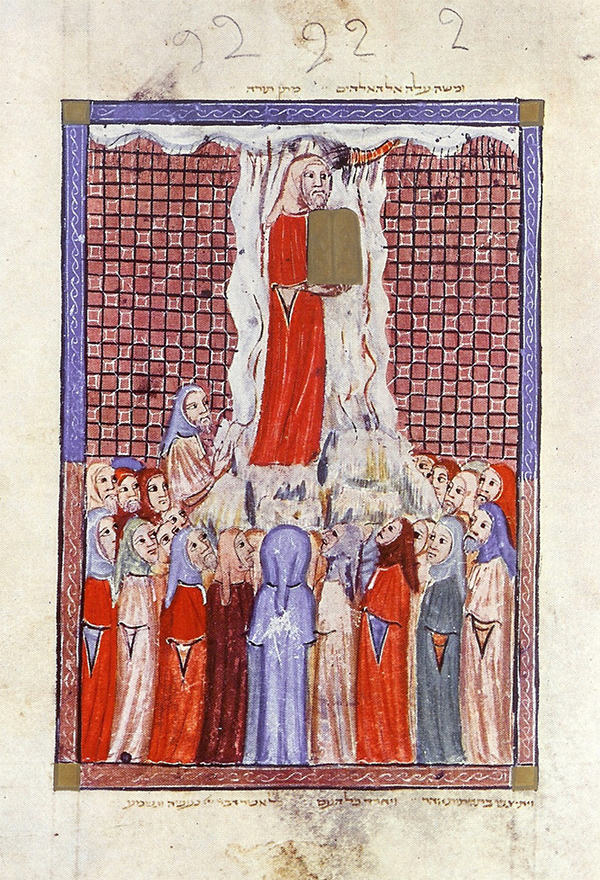 92 92 2
ומשה עלה אל האלהים מתן תורה
ויתיצבו בתחתית ההר ויחרד כל העם כל אשר דבר יי נעשה ונשמע